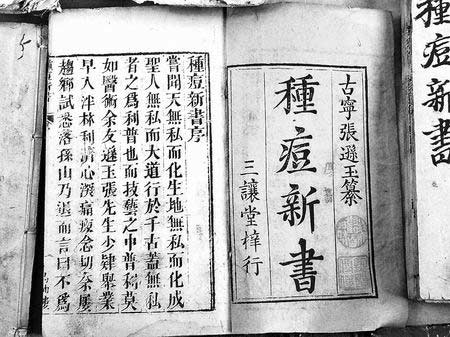 種痘新書
古寧張遜玉纂
種痘新書
三讓堂梓行
種痘新書序
嘗聞天無私而化生地無私而化成
聖人無私而大道行於千古蓋無私
者之爲利普也而技藝之中普莫
如醫術余友遜玉張先生少肄舉業
早入泮林利濟心深念切奈屢
趨鄉試悉落孫山乃退而言曰不爲